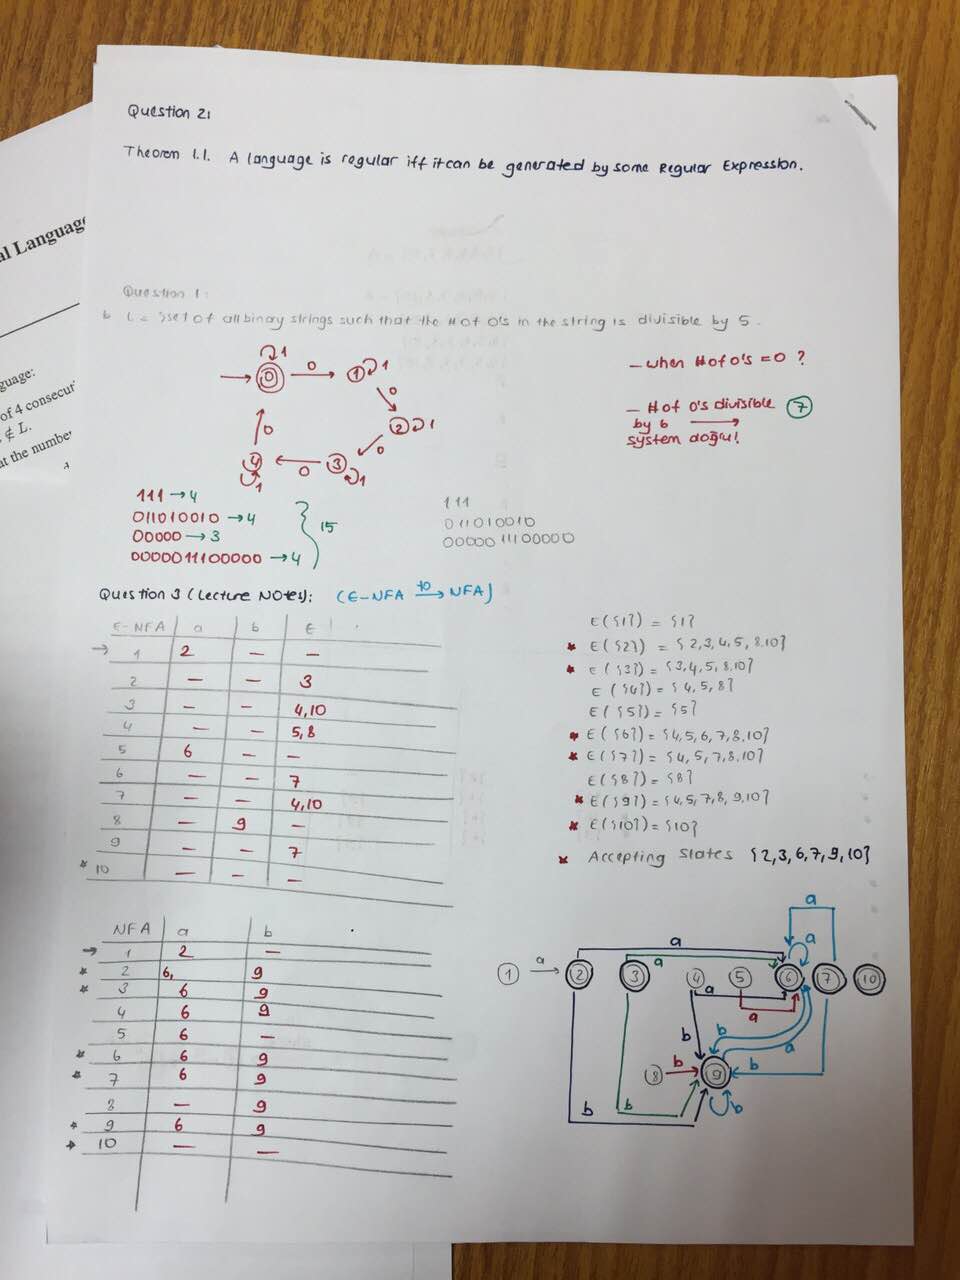 Question 2:
Theorem 1.1. A language is regular iff it can be generated by some Regular Expression.
Question 1:
b L = {set of all binary strings such that the # of 0's in the string is divisible by 5.
0 1 0 1 1 0 2 1 0 3 1 0 4 1 0
- when # of 0's = 0 ?
- # of 0's divisible by 6 → 7
system doğru!
111 → 4
011010010 → 4
00000 → 3
0000011100000 → 4
15
111
011010010
0000011100000
Question 3 (Lecture Notes): (E-NFA to→ NFA)
E-NFA a b E
→ 1 2 - -
2 - - 3
3 - - 4,10
4 - - 5,8
5 6 - -
6 - - 7
7 - - 4,10
8 - 9 -
9 - - 7
* 10 - - -
E({1}) = {1}
* E({2}) = {2,3,4,5,8,10}
* E({3}) = {3,4,5,8,10}
E({4}) = {4,5,8}
E({5}) = {5}
* E({6}) = {4,5,6,7,8,10}
* E({7}) = {4,5,7,8,10}
E({8}) = {8}
* E({9}) = {4,5,7,8,9,10}
* E({10}) = {10}
* Accepting States {2,3,6,7,9,10}
NFA a b
→ 1 2 -
* 2 6, 9
* 3 6 9
4 6 9
5 6 -
* 6 6 9
* 7 6 9
8 - 9
* 9 6 9
* 10 - -
a
a a a
1 a 2 3 4 5 6 7 10
a a
b b a b
8 b 9
b b b
al Language
guage:
of 4 consecu
∉ L.
at the numbe